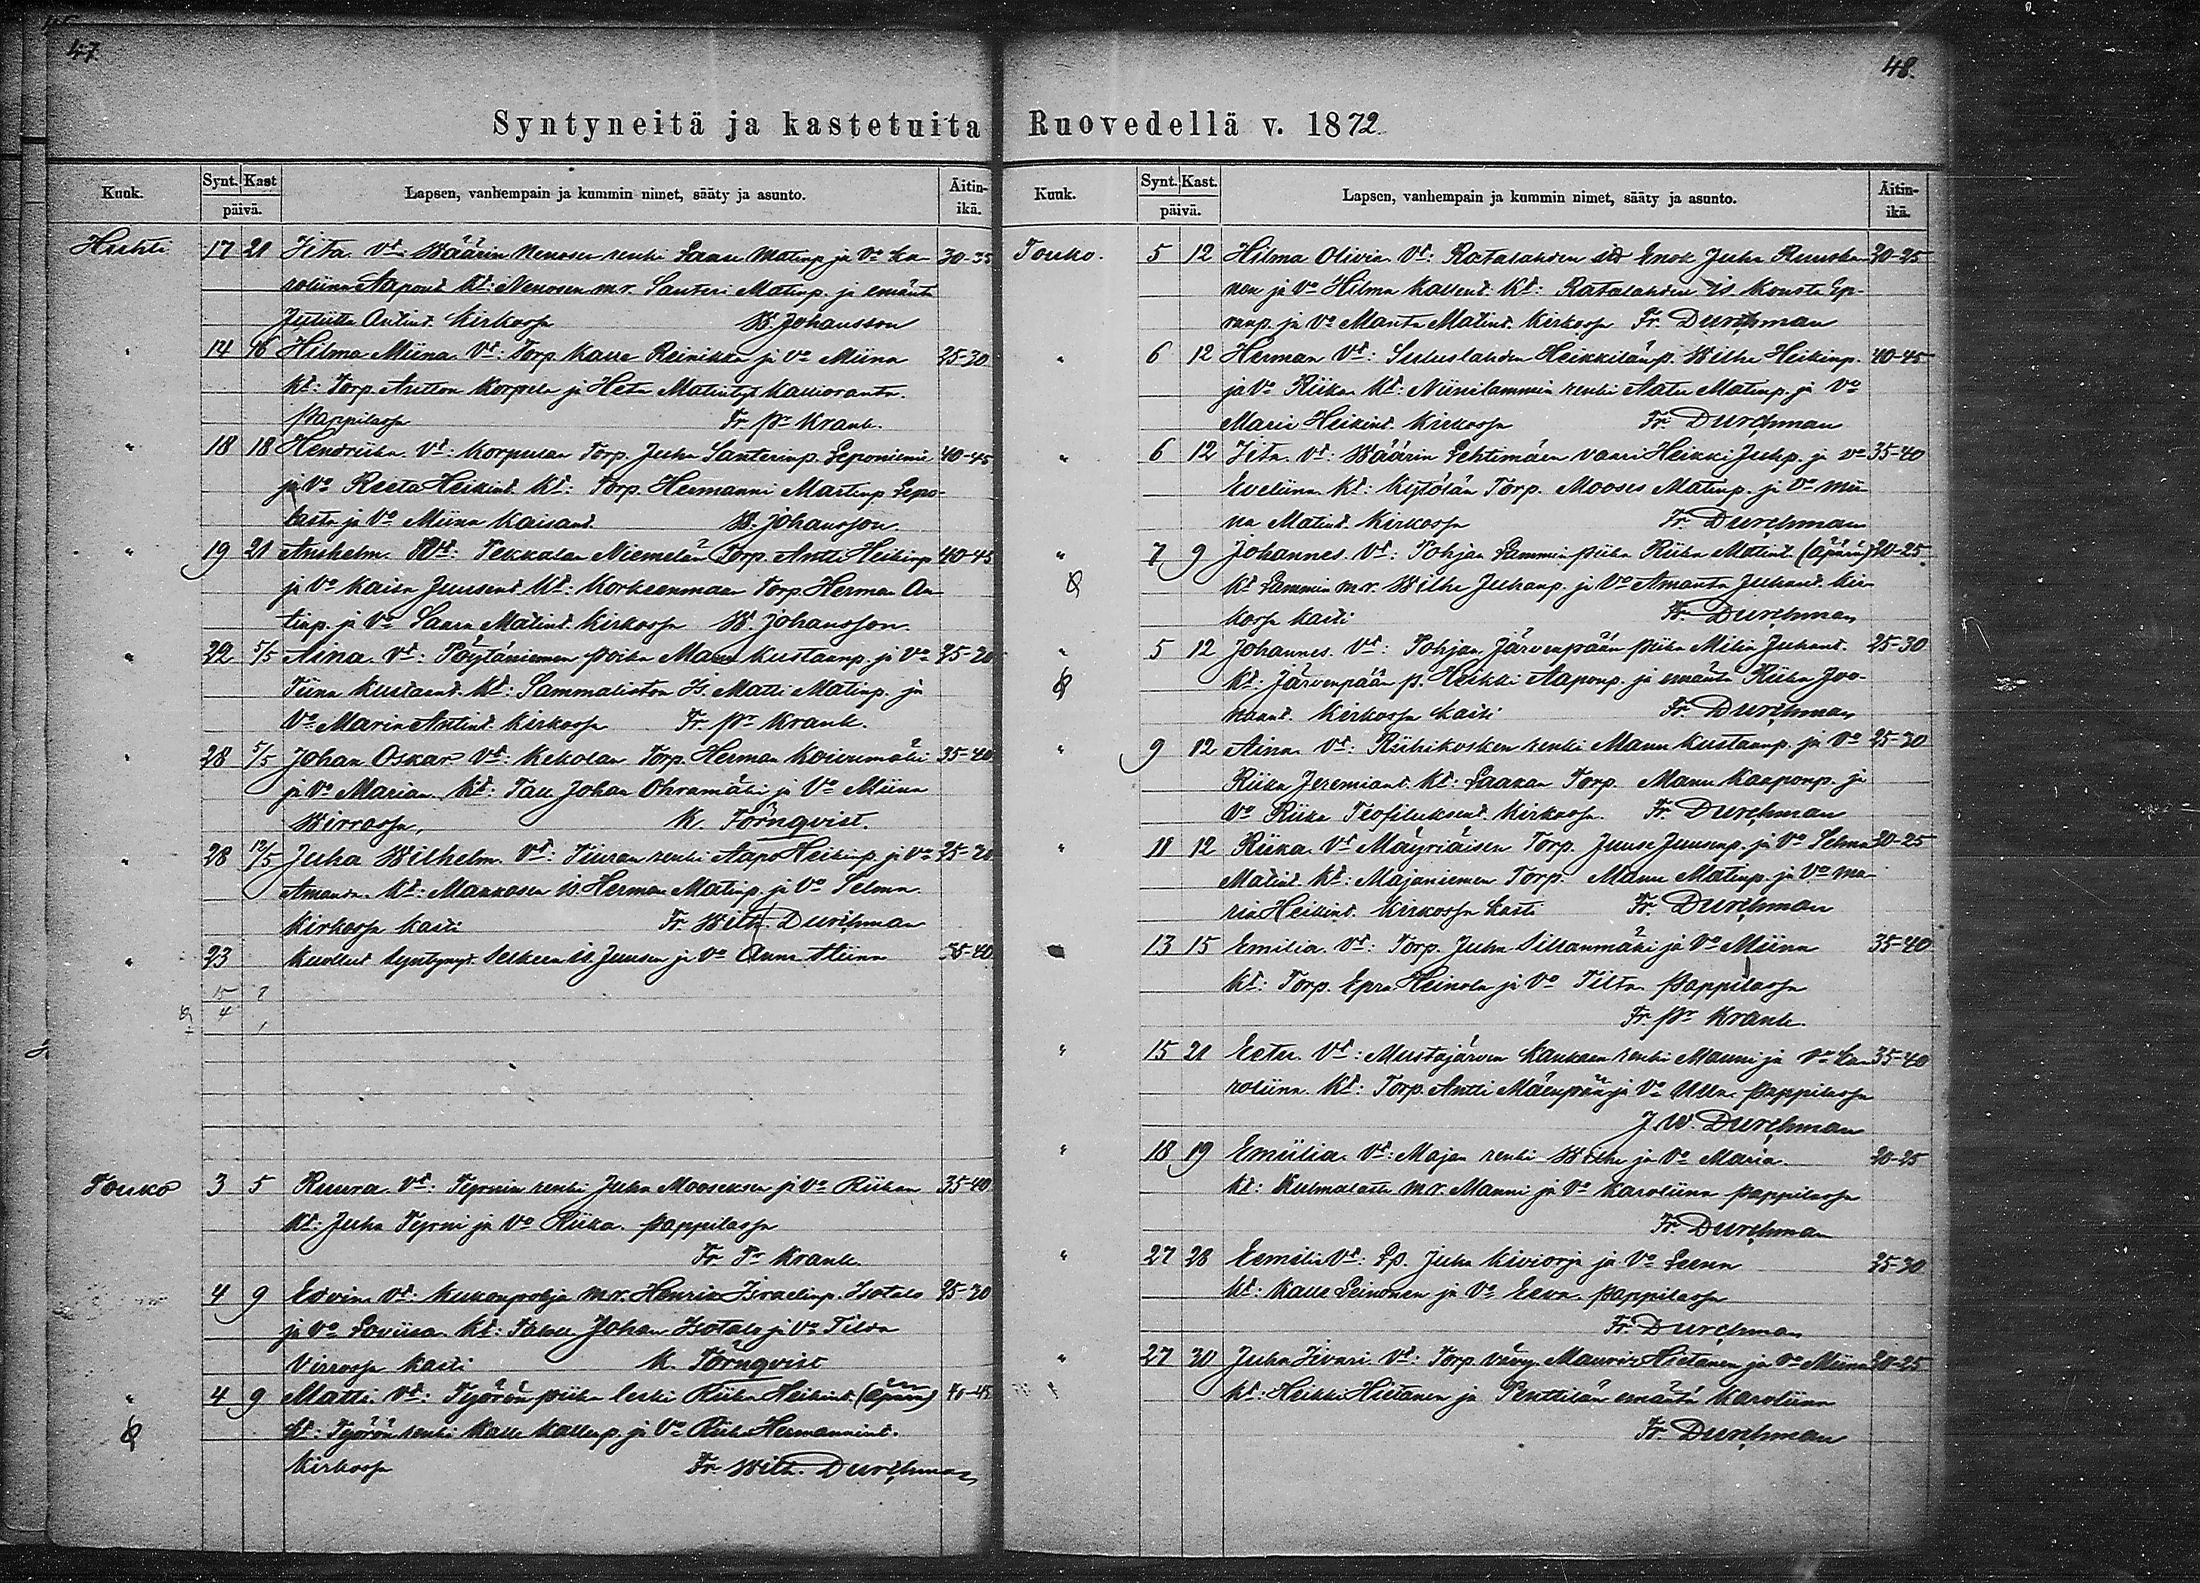 47.
Syntyneitä ja kastetuita
Kuuk. Synt. Kast päivä. Lapsen, vanhempain ja kummin nimet, sääty ja asunto. Äitin-ikä.
Huhti 17 21 Iita Vt: Väärin Nenosen renki Matinp. ja Vo Ka- 30-35
roliina Aapont. Kt: Nenosen m.v. Santeri Matinp. ja emäntä
Antint. Kirkossa W. Johansson
" 14 16 Hilma Miina. Vt: Torp. Kalle Reinikka ja Vo Miina 25-30
Kt: Torp. Antton Korpela ja Heta Matintyt. Kallioranta.
Pappilassa Fr. Pr Krank.
" 18 18 Hendriika. Vt: Korpulan Torp. Juha Santerinp. Leponiemi 40-45
ja Vo Reeta Heikint. Kt: Torp. Hermanni Martinp. Lepo-
lasta ja Vo Miina Kaisant. W. Johansson.
" 19 21 Anshelm. Vt: Pekkalan Niemelän Torp. Antti Heikinp. 40-45
ja Vo Kaisa Juusent. Kt: Korkeenmaan Torp. Herman An-
tinp. ja Vo Saara Matint. Kirkossa W. Johansson.
" 22 5/5 Aina. Vt: Pöytäniemen poika Manu Kustaanp. ja Vo 25-30
Tiina Kustaant. Kt: Sammaliston Is. Matti Matinp. ja
Vo Maria Antint. Kirkossa Fr. Pr Krank.
" 28 5/5 Johan Oskar Vt: Kekolan Torp. Herman Koivumäki 35-40
ja Vo Marian. Kt: Tall. Johan Ohramäki ja Vo Miina
Wirroissa, K. Törnqvist.
" 28 12/5 Juha Wilhelm. Vt: Tiuran renki Aapo Heikinp. ja Vo 25-30
Amanda. Kt: Mankosen Is. Herman Matinp. ja Vo Selma
Kirkossa kasti Fr. Wilh. Durchman
" 23 Kuollut syntynyt. Is. Juusen ja Vo Anna Miina 35-40
15/4 ?
Touko 3 5 Ruura. Vt: Tyrnin renki Juha Mooseksen ja Vo Riikan 35-40
Kt: Juha Tyrni ja Vo Riika. Pappilassa
Fr. Pr Krank.
" 4 9 Edvin. Vt: Kukonpohja m.v. Henrik Israelinp. Isotalo 25-30
ja Vo Loviisa. Kt: Johan Isotalo ja Vo Tilda
Virroissa kasti K. Törnqvist
" 4 9 Matti. Vt: Työrön piika leski Riika Heikint. (äpärä) 40-45
Kt: Työrön renki Kalle Kallenp. ja Vo Riika Hermannint.
Kirkossa Fr. Wilh. Durchman
48.
Ruovedellä v. 1872.
Kuuk. Synt. Kast. päivä. Lapsen, vanhempain ja kummin nimet, sääty ja asunto. Äitin-ikä.
Touko. 5 12 Hilma Olivia. Vt: Ratalahden Enok Juha Ruuska- 20-25
nen ja Vo Hilma Kallent. Kt: Ratalahden is. Konsta Ep-
ranp. ja Vo Manta Matint. Kirkossa Fr. Durchman
" 6 12 Herman Vt: Heikkilän p. Wilhe Heikinp. 40-45
ja Vo Riika. Kt: Niinilammin renki Aatu Matinp. ja Vo
Maria Heikint. Kirkossa Fr. Durchman
" 6 12 Iita. Vt: Väärin Lehtimäen vaari Heikki Juhp. ja Vo 35-40
Eveliina. Kt: Kytölän Torp. Mooses Matinp. ja Vo Mii-
na Matint. Kirkossa Fr. Durchman
" 7 9 Johannes. Vt: Pohjan Lammin piika Riika Matint. (äpärä) 20-25
Kt: Lammin m.v. Wilhe Juhanp. ja Vo Amanta Juhant. Kir-
kossa kasti Fr. Durchman
" 5 12 Johannes. Vt: Pohjan Järvenpään piika Milia Juhant. 25-30
Kt: Järvenpään p. Heikki Aaponp. ja emäntä Riika Joo-
nant. Kirkossa kasti Fr. Durchman
" 9 12 Aina. Vt: Riihikosken renki Manu Kustaanp. ja Vo 25-30
Riika Jeremiant. Kt: Laakan Torp. Manu Kaaponp. ja
Vo Riika Teofiluksent. Kirkossa. Fr. Durchman
" 11 12 Riika. Vt Mäyriäisen Torp. Juuse Juusenp. ja Vo Selma 20-25
Matint. Kt: Majaniemen Torp. Manu Matinp. ja Vo Ma-
ria Heikint. Kirkossa kasti Fr. Durchman
" 13 15 Emilia. Vt: Torp. Juha Sillanmäki ja Vo Miina 35-40
Kt: Torp. Epra Heinola ja Vo Tilta. Pappilassa
Fr. Pr Krank.
" 15 21 Eetu. Vt: Mustajärven Kankaan renki Manni ja Vo Ka- 35-40
roliina. Kt: Torp. Antti Mäenpää ja Vo Ulla. Pappilassa
J. W. Durchman
" 18 19 Emiilia. Vt: Majan renki Wilhe ja Vo Maria. 20-25
Kt: Kulmalasta m.v. Manni ja Vo Karoliina Pappilassa
Fr. Durchman
" 27 28 Eemili Vt: Lp. Juha Kivioja ja Vo Leena 25-30
Kt: Kalle Leinonen ja Vo Eeva. Pappilassa
Fr. Durchman
" 27 30 Juha Iivari. Vt: Torp. vävy Mauri Hietanen ja Vo Miina 20-25
Kt: Heikki Hietanen ja Penttilän emäntä Karoliina
Fr. Durchman